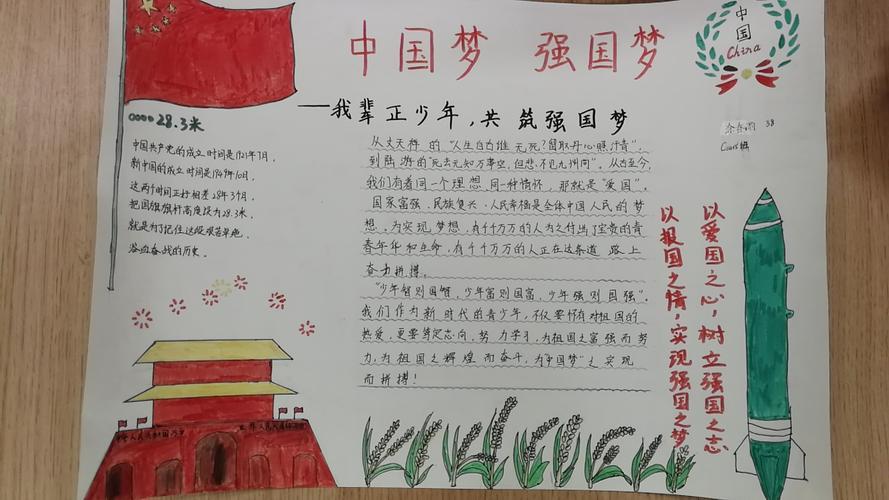 中国梦 强国梦
——我辈正少年,共筑强国梦
中国
China
38
28.3米
中国共产党的成立时间是1921年7月,
新中国的成立时间是1949年10月,
这两时间正好相差28年3个月,
把国旗旗杆高度设为28.3米,
就是为了记住这段艰苦卓绝,
浴血奋战的历史。
从文天祥的"人生自古谁无死?留取丹心照汗青"。
到陆游的"死去元知万事空,但悲不见九州同"。从古至今,
我们有着同一个理想,同一种情怀,那就是"爱国"。
国家富强、民族复兴、人民幸福是全体中国人民的梦
想。为实现梦想,有千千万万的人为之付出了宝贵的青
春年华和生命,有千千万万的人正在这条道路上
奋力拼搏。
"少年智则国智,少年富则国富,少年强则国强"。
我们作为新时代的青少年,不仅要怀有对祖国的
热爱,更要笃定志向,努力学习,为祖国之富强而努
力,为祖国之辉煌而奋斗,为"中国梦"之实现
而拼搏!
以爱国之心,树立强国之志
以报国之情,实现强国之梦